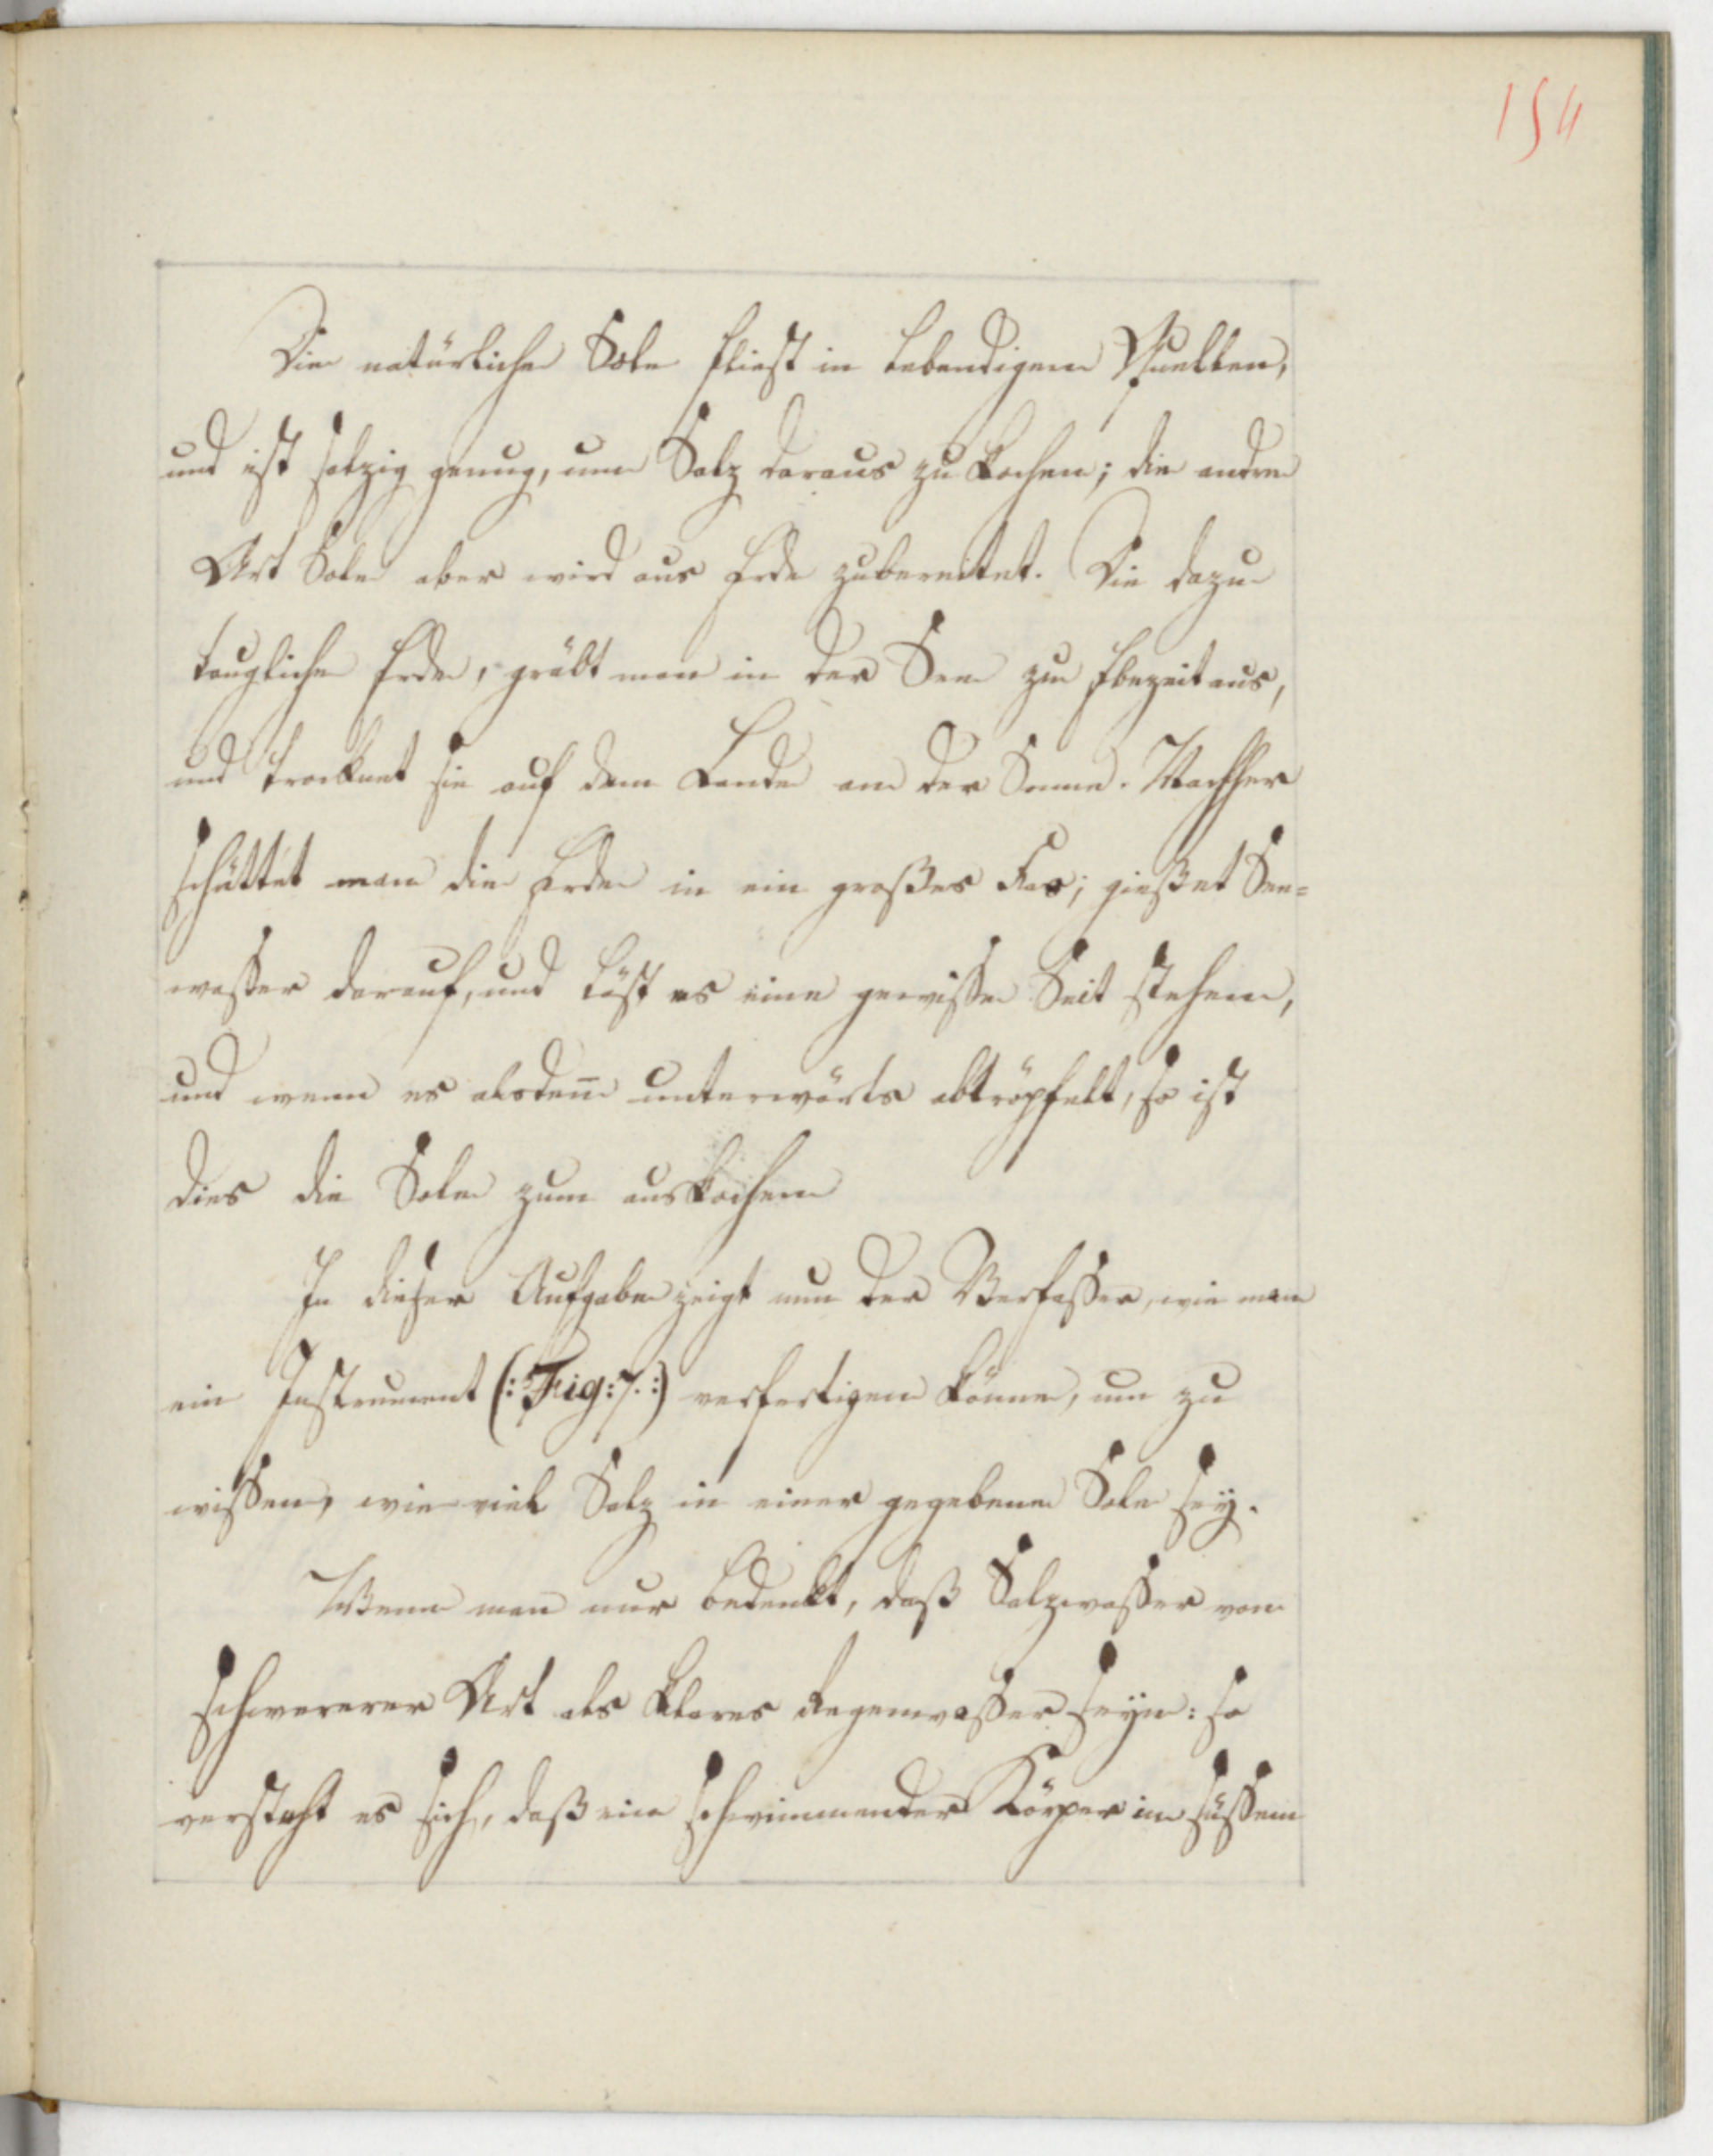 154
Die natürliche Sole fliest in lebendigen Quellen,
und ist salzig genug, um Salz daraus zu kochen; die andre
Art Sole aber wird aus Erde zubereitet. Die dazu
taugliche Erde, gräbt man in der See zur Ebezeit aus,
und trocknet sie auf dem Lande an der Sonne. Nachher
schüttet man die Erde in ein großes Fas; gießet See=
wasser darauf, und läst es eine gewisse Zeit stehen,
und wenn es alsden̅ unterwärts abtröpfelt, so ist
dies die Sole zum auskochen
In dieser Aufgabe zeigt nun der Verfasser, wie man
ein Instrument (: Fig: 7. :) verfertigen könne, um zu
wissen, wie viel Salz in einer gegebenen Sole sey.
Wenn man nur bedenkt, daß Salzwasser von
schwererer Art als klares Regenwasser seyn: so
versteht es sich, daß ein schwimmender Körper im süssen